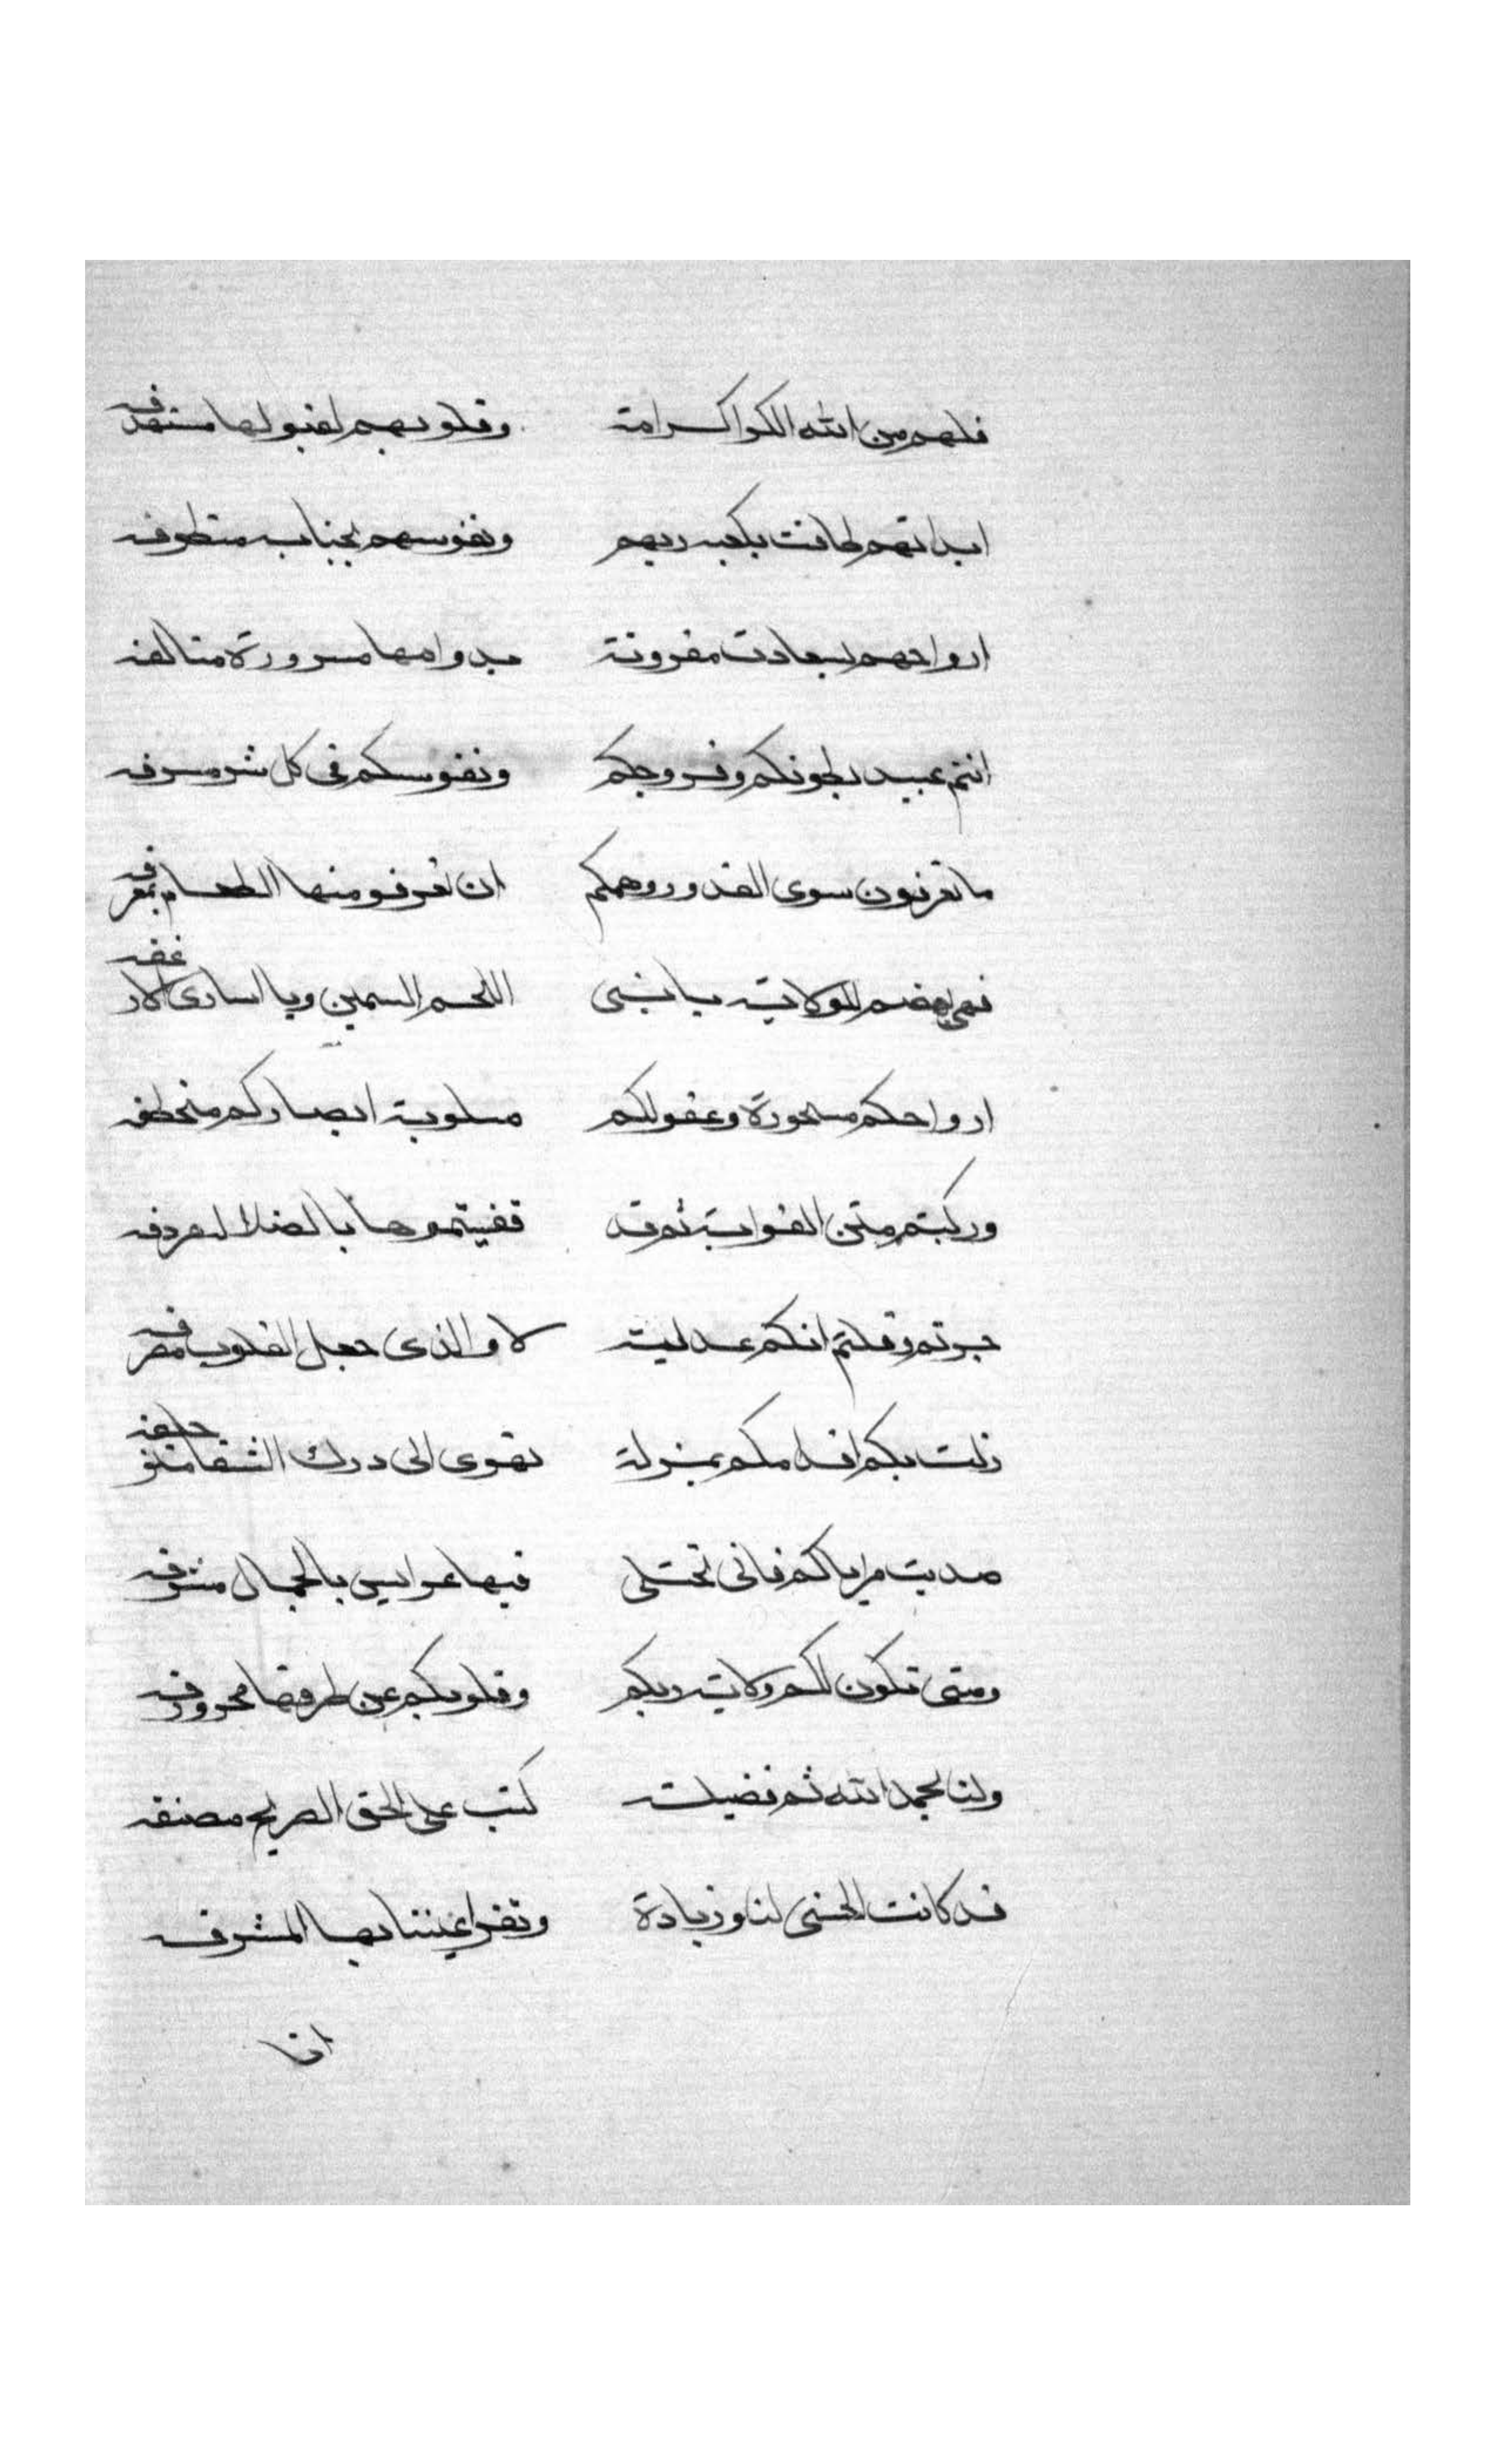 فلهم من الله الكرا كرامة وقلوبهم لقبولها مستهدفه
ابدانهم طافت بكعبه ربهم ونفوسهم بجناب متطوفه
ارواحهم بسعادت مقرونة بدوامها مسرورة متالفه
انتم عبيد بطونكم وفروجكم ونفوسكم فى كل شر مسرفه
ما تعرفون سوى القدور وهمكم ان تغرفو منها الطعام بمغرفه
اللحم السمين ويا
ارواحكم مسحورة وعقولكم مسلوبة ابصاركم منخطفه
وركبتم متن الغوايت ثم قد قفيتموها بالضلال مردفه
جرتم وقلتم انكم عدليت لا والذى جعل القلوب مصرفه
زلت بكم اقدامكم بمزلة تهوى الى درك الشقا متزحلفه
صديت مراياكم فانى تجتلى فيها عرايس بالجمال مشرفه
ومتى تكون لكم ولايت ربكم وقلوبكم عن طرقها محروفه
ولنا بحمد الله ثم فضيلت كتب على الحق الصريح مصنفه
قد كانت الحسنى لنا وزيادة وتقر اعيننا بها المتشرفه
انا